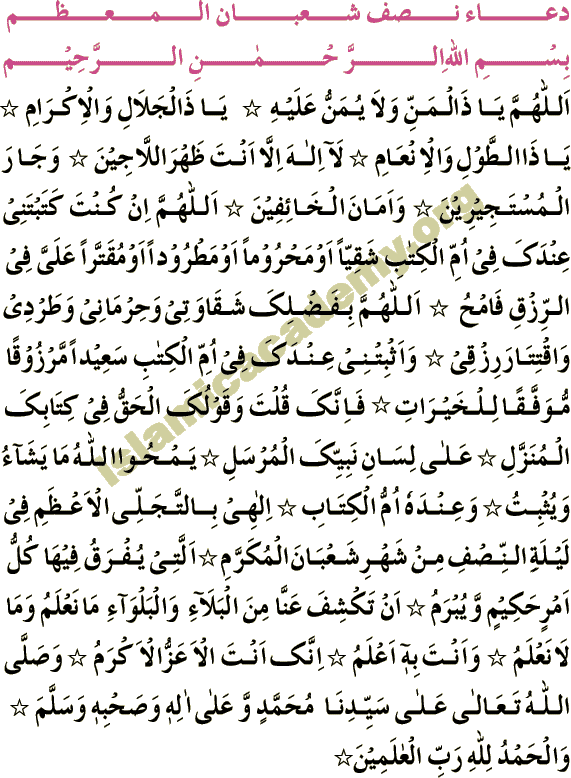 دعاء نصف شعبان المعظم
بِسْمِ اللهِ الرَّحْمٰنِ الرَّحِيْمِ
اَللّٰهُمَّ يَا ذَالْمَنِّ وَلَا يُمَنُّ عَلَيْهِ ☆ يَا ذَالْجَلَالِ وَالْاِكْرَامِ ☆
يَا ذَاالطَّوْلِ وَالْاِنْعَامِ ☆ لَآ اِلٰهَ اِلَّا اَنْتَ ظَهْرَاللَّاجِيْنَ ☆ وَجَارَ
الْمُسْتَجِيْرِيْنَ ☆ وَاَمَانَ الْخَائِفِيْنَ ☆ اَللّٰهُمَّ اِنْ كُنْتَ كَتَبْتَنِيْ
عِنْدَکَ فِيْ اُمِّ الْكِتٰبِ شَقِيًّا اَوْمَحْرُوْماً اَوْمَطْرُوْداً اَوْمُقَتَّراً عَلَيَّ فِي
الرِّزْقِ فَامْحُ ☆ اَللّٰهُمَّ بِفَضْلِکَ شَقَاوَتِيْ وَحِرْمَانِيْ وَطَرْدِيْ
وَاقْتِتَارَرِزْقِيْ ☆ وَاَثْبِتْنِيْ عِنْدَکَ فِيْ اُمِّ الْكِتٰبِ سَعِيْداً مَّرْزُوْقًا
مُّوَفَّقًا لِلْخَيْرَاتِ ☆ فَاِنَّکَ قُلْتَ وَقَوْلُکَ الْحَقُّ فِيْ كِتَابِکَ
الْمُنَزَّلِ ☆ عَلٰى لِسَانِ نَبِيِّکَ الْمُرْسَلِ ☆ يَمْحُوااللّٰهُ مَا يَشَآءُ
وَيُثْبِتُ ☆ وَعِنْدَهٗ اُمُّ الْكِتَابِ ☆ اِلٰهِيْ بِالتَّجَلِّي الْاَعْظَمِ فِيْ
لَيْلَةِ النِّصْفِ مِنْ شَهْرِ شَعْبَانَ الْمُكَرَّمِ ☆ اَلَّتِيْ يُفْرَقُ فِيْهَا كُلُّ
اَمْرٍحَكِيْمٍ وَّيُبْرَمُ ☆ اَنْ تَكْشِفَ عَنَّا مِنَ الْبَلَآءِ وَالْبَلْوَآءِ مَا نَعْلَمُ وَمَا
لَا نَعْلَمُ ☆ وَاَنْتَ بِهٖٓ اَعْلَمُ ☆ اِنَّکَ اَنْتَ الْاَعَزُّالْاَكْرَمُ ☆ وَصَلَّى
اللّٰهُ تَعَالٰى عَلٰى سَيِّدِنَا مُحَمَّدٍ وَّ عَلٰى اٰلِهٖ وَصَحْبِهٖ وَسَلَّمَ ☆
وَالْحَمْدُ لِلّٰهِ رَبِّ الْعٰلَمِيْنَ☆
islamicacademy.org